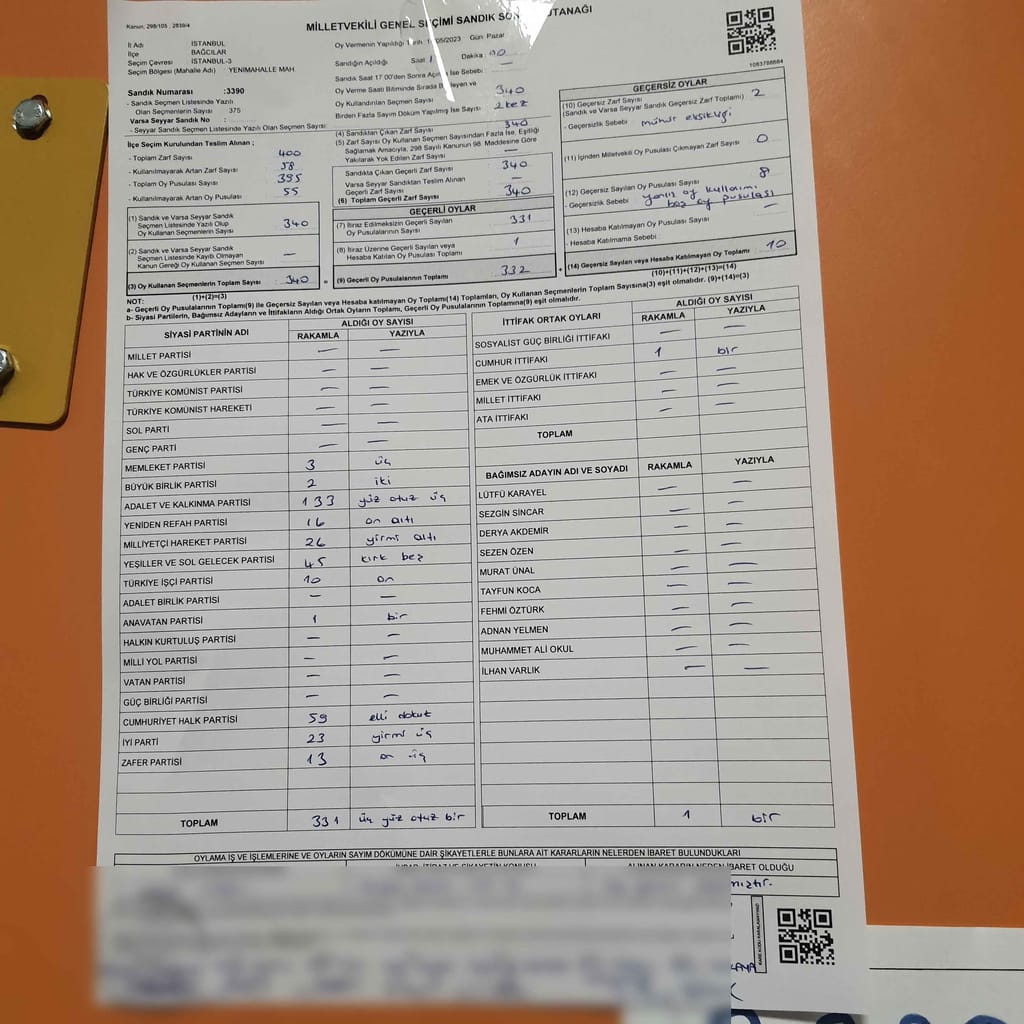 Kanun, 298/105 , 2839/4
MİLLETVEKİLİ GENEL SEÇİMİ SANDIK SON TUTANAĞI
İl Adı İSTANBUL
İlçe BAĞCILAR
Seçim Çevresi İSTANBUL-3
Seçim Bölgesi (Mahalle Adı) YENİMAHALLE MAH.
Sandık Numarası :3390
- Sandık Seçmen Listesinde Yazılı
Olan Seçmenlerin Sayısı 375
Varsa Seyyar Sandık No :
- Seyyar Sandık Seçmen Listesinde Yazılı Olan Seçmen Sayısı
İlçe Seçim Kurulundan Teslim Alınan ;
- Toplam Zarf Sayısı 400
- Kullanılmayarak Artan Zarf Sayısı 58
- Toplam Oy Pusulası Sayısı 395
- Kullanılmayarak Artan Oy Pusulası 55
(1) Sandık ve Varsa Seyyar Sandık
Seçmen Listesinde Yazılı Olup
Oy Kullanan Seçmenlerin Sayısı 340
(2) Sandık ve Varsa Seyyar Sandık
Seçmen Listesinde Kayıtlı Olmayan
Kanun Gereği Oy Kullanan Seçmen Sayısı —
(3) Oy Kullanan Seçmenlerin Toplam Sayısı 340
(1)+(2)=(3)
Oy Vermenin Yapıldığı /05/2023 Gün Pazar
Sandığın Açıldığı Saat Dakika : 00
Sandık Saat 17:00'den Sonra Açılmış İse Sebebi : —
Oy Verme Saati Bitiminde Sırada Bekleyen ve
Oy Kullandırılan Seçmen Sayısı 340
Birden Fazla Sayım Döküm Yapılmış İse Sayısı 2 kez
(4) Sandıktan Çıkan Zarf Sayısı 340
(5) Zarf Sayısı Oy Kullanan Seçmen Sayısından Fazla İse, Eşitliği
Sağlamak Amacıyla, 298 Sayılı Kanunun 98. Maddesine Göre
Yakılarak Yok Edilen Zarf Sayısı —
Sandıkta Çıkan Geçerli Zarf Sayısı 340
Varsa Seyyar Sandıktan Teslim Alınan
Geçerli Zarf Sayısı —
(6) Toplam Geçerli Zarf Sayısı 340
GEÇERLİ OYLAR
(7) İtiraz Edilmeksizin Geçerli Sayılan
Oy Pusulalarının Sayısı 331
(8) İtiraz Üzerine Geçerli Sayılan veya
Hesaba Katılan Oy Pusulası Toplamı 1
(9) Geçerli Oy Pusulalarının Toplamı 332
1083788684
GEÇERSİZ OYLAR
(10) Geçersiz Zarf Sayısı
(Sandık ve Varsa Seyyar Sandık Geçersiz Zarf Toplamı) 2
- Geçersizlik Sebebi : mühür eksikliği
(11) İçinden Milletvekili Oy Pusulası Çıkmayan Zarf Sayısı 0
(12) Geçersiz Sayılan Oy Pusulası Sayısı 8
- Geçersizlik Sebebi yanlış oy kullanımı
boş oy pusulası
(13) Hesaba Katılmayan Oy Pusulası Sayısı —
- Hesaba Katılmama Sebebi :
(14) Geçersiz Sayılan veya Hesaba Katılmayan Oy Toplamı 10
(10)+(11)+(12)+(13)=(14)
NOT:
a- Geçerli Oy Pusulalarının Toplamı(9) ile Geçersiz Sayılan veya Hesaba katılmayan Oy Toplamı(14) Toplamları, Oy Kullanan Seçmenlerin Toplam Sayısına(3) eşit olmalıdır. (9)+(14)=(3)
b- Siyasi Partilerin, Bağımsız Adayların ve İttifakların Aldığı Ortak Oyların Toplamı, Geçerli Oy Pusulalarının Toplamına(9) eşit olmalıdır.
SİYASİ PARTİNİN ADI ALDIĞI OY SAYISI
RAKAMLA YAZIYLA
MİLLET PARTİSİ — —
HAK VE ÖZGÜRLÜKLER PARTİSİ — —
TÜRKİYE KOMÜNİST PARTİSİ — —
TÜRKİYE KOMÜNİST HAREKETİ — —
SOL PARTİ — —
GENÇ PARTİ — —
MEMLEKET PARTİSİ 3 üç
BÜYÜK BİRLİK PARTİSİ 2 iki
ADALET VE KALKINMA PARTİSİ 133 yüz otuz üç
YENİDEN REFAH PARTİSİ 16 on altı
MİLLİYETÇİ HAREKET PARTİSİ 26 yirmi altı
YEŞİLLER VE SOL GELECEK PARTİSİ 45 kırk beş
TÜRKİYE İŞÇİ PARTİSİ 10 on
ADALET BİRLİK PARTİSİ — —
ANAVATAN PARTİSİ 1 bir
HALKIN KURTULUŞ PARTİSİ — —
MİLLİ YOL PARTİSİ — —
VATAN PARTİSİ — —
GÜÇ BİRLİĞİ PARTİSİ — —
CUMHURİYET HALK PARTİSİ 59 elli dokuz
İYİ PARTİ 23 yirmi üç
ZAFER PARTİSİ 13 on üç
TOPLAM 331 üç yüz otuz bir
İTTİFAK ORTAK OYLARI ALDIĞI OY SAYISI
RAKAMLA YAZIYLA
SOSYALİST GÜÇ BİRLİĞİ İTTİFAKI — —
CUMHUR İTTİFAKI 1 bir
EMEK VE ÖZGÜRLÜK İTTİFAKI — —
MİLLET İTTİFAKI — —
ATA İTTİFAKI — —
TOPLAM
BAĞIMSIZ ADAYIN ADI VE SOYADI RAKAMLA YAZIYLA
LÜTFÜ KARAYEL — —
SEZGİN SİNCAR — —
DERYA AKDEMİR — —
SEZEN ÖZEN — —
MURAT ÜNAL — —
TAYFUN KOCA — —
FEHMİ ÖZTÜRK — —
ADNAN YELMEN — —
MUHAMMET ALİ OKUL — —
İLHAN VARLIK — —
TOPLAM 1 bir
OYLAMA İŞ VE İŞLEMLERİNE VE OYLARIN SAYIM DÖKÜMÜNE DAİR ŞİKAYETLERLE BUNLARA AİT KARARLARIN NELERDEN İBARET BULUNDUKLARI
ALINAN KARARIN NEDEN İBARET OLDUĞU
mıştır.